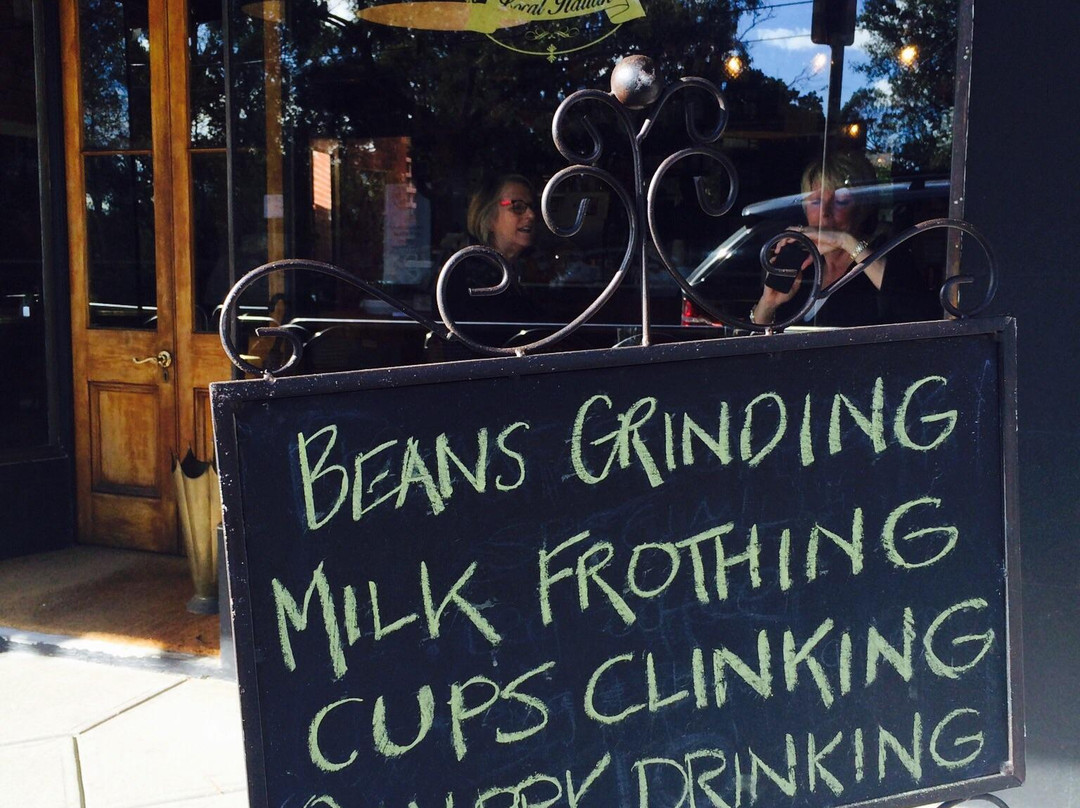 Local Italian
BEANS GRINDING
MILK FROTHING
CUPS CLINKING
DRINKING